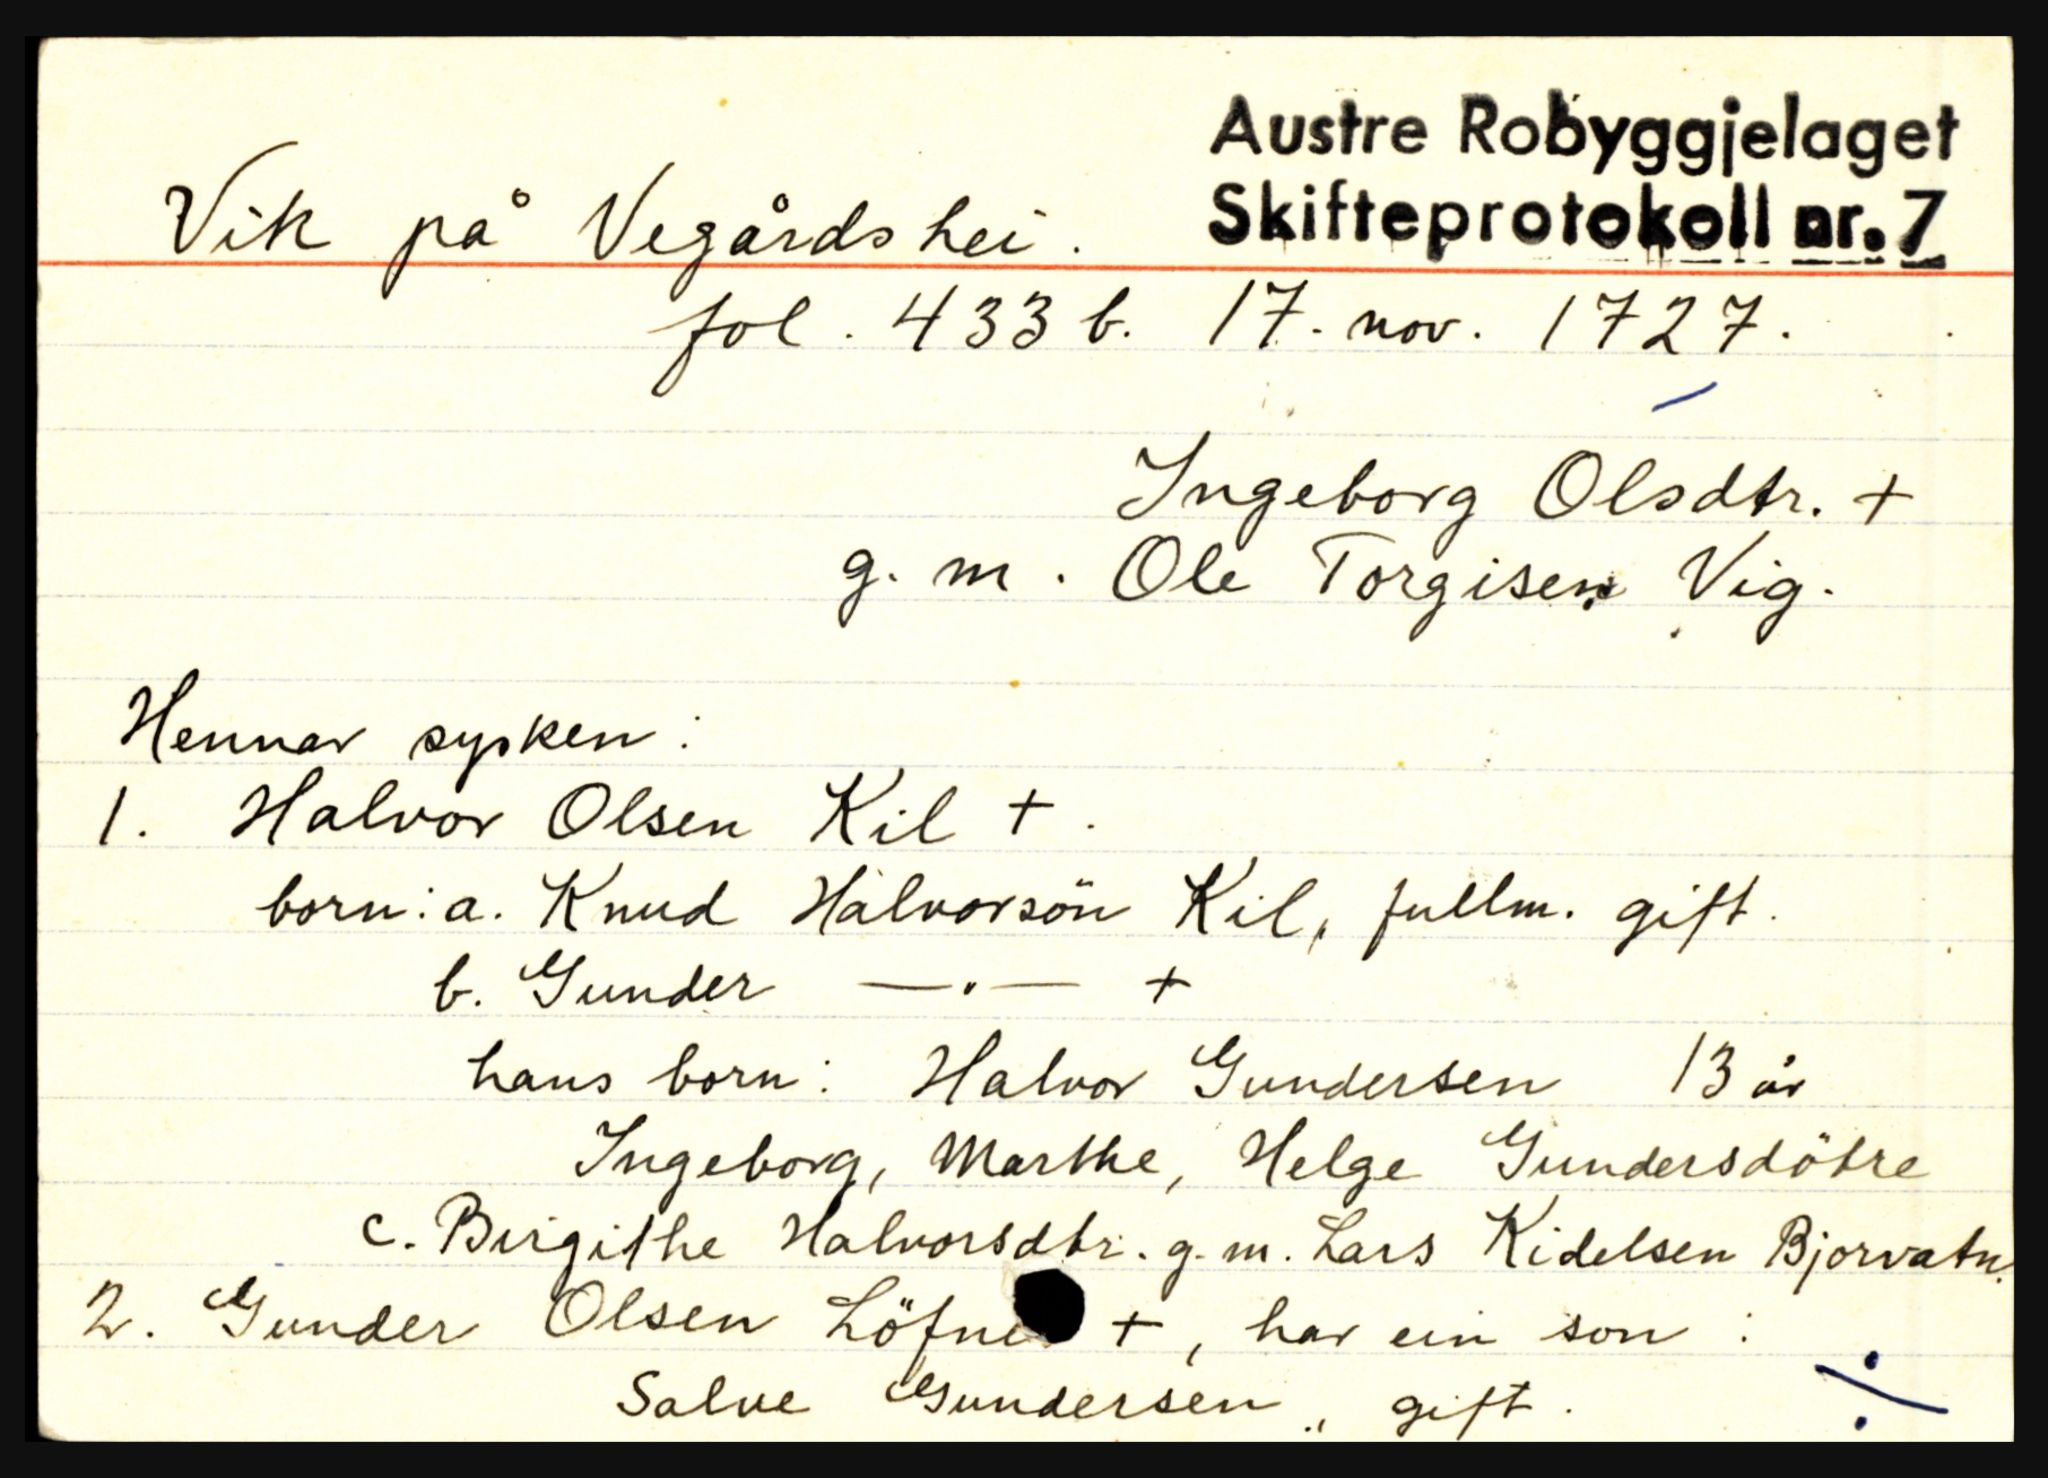 Austre Robyggjelaget
Vik på Vegårdshei. Skifteprotokoll nr. 7
fol. 433 b. 17. nov. 1727.
Ingeborg Olsdtr. +
g. m. Ole Torgisen Vig.
Hennar sysken:
1. Halvor Olsen Kil +.
born: a. Knud Halvorsön Kil, fullm. gift.
b. Gunder —〃— +
hans born: Halvor Gundersen 13 år
Ingeborg, Marthe, Helge Gundersdötre
c. Birgithe Halvorsdtr. g.m. Lars Kidelsen Bjorvatn.
2. Gunder Olsen +, har ein son:
Salve Gundersen, gift.